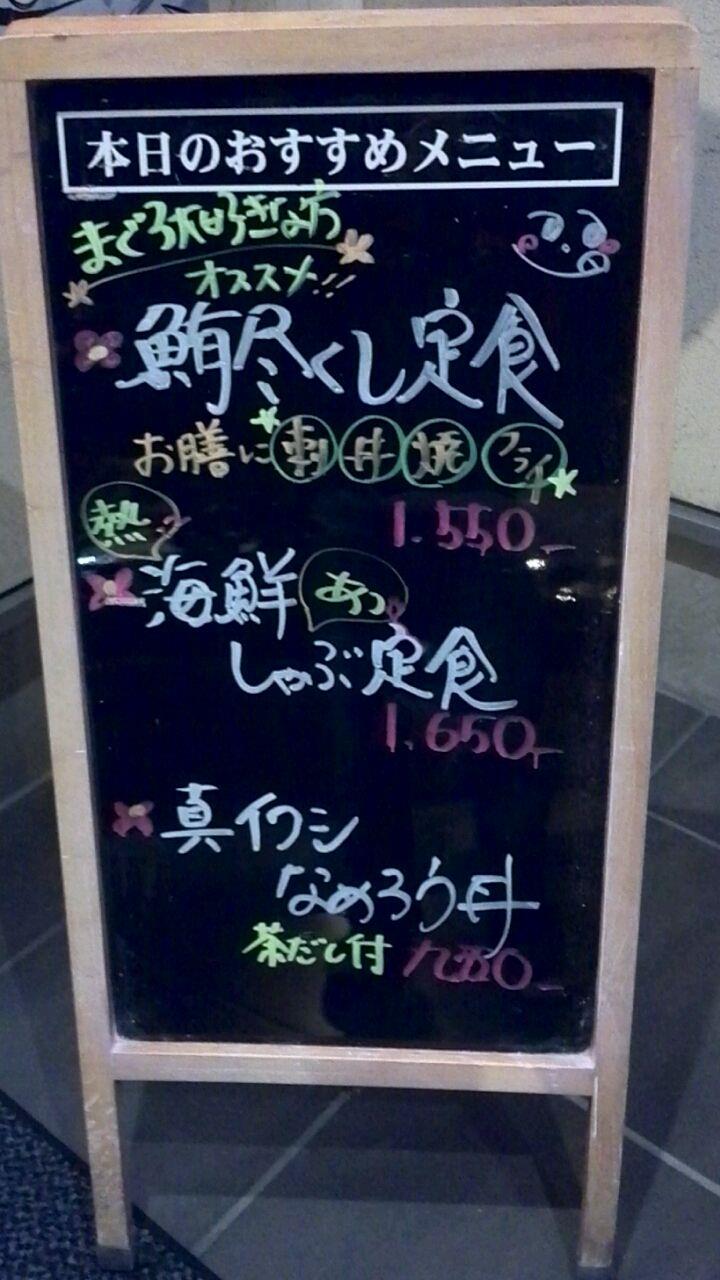 本日のおすすめメニュー
まぐろ大好きな方
オススメ!!
鮪尽くし定食
お膳に刺丼焼フライ
1.550-
熱々
海鮮あつ
しゃぶ定食
1.650-
真イワシ
なめろう丼
茶だし付